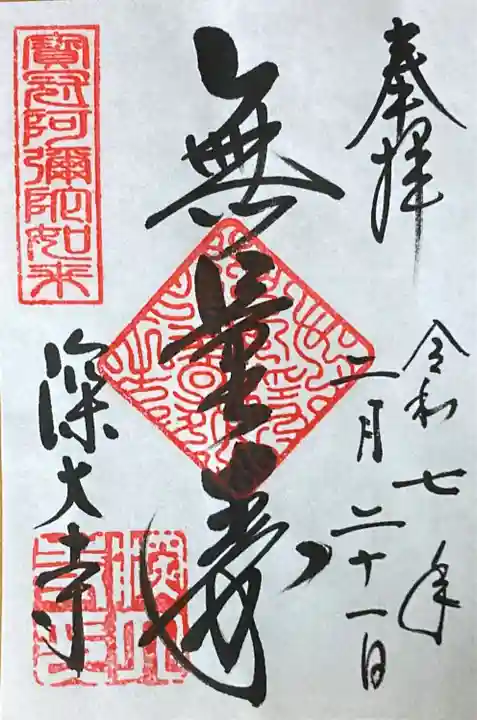 奉拝
令和七年
二月二十一日
無量壽
寳冠阿彌陀如来
深大寺